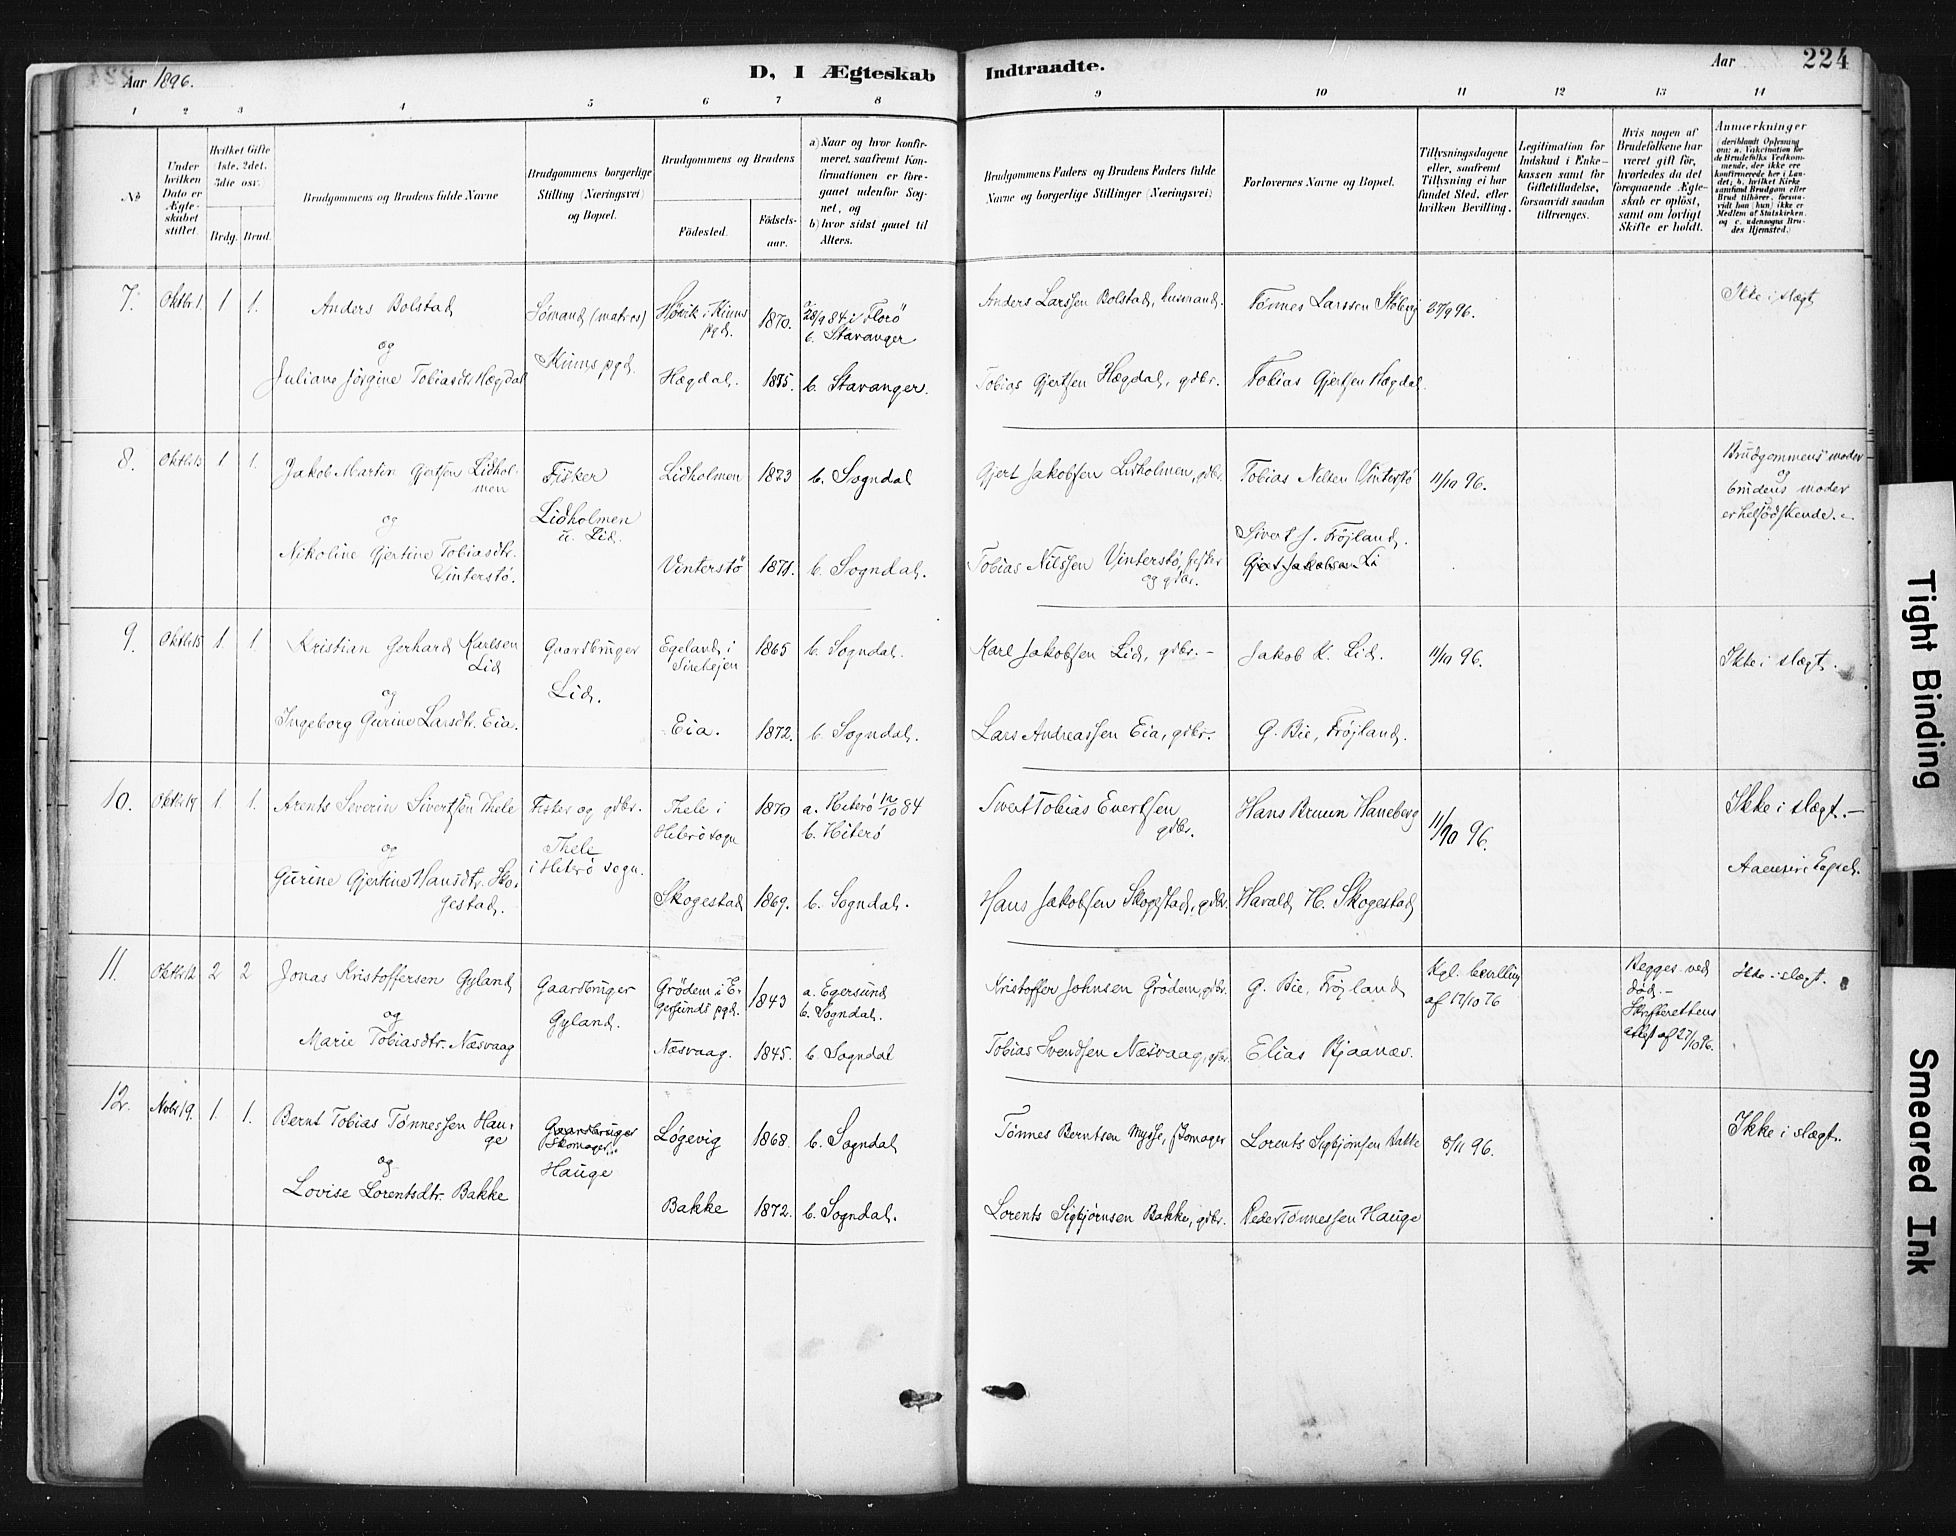 Aar 1896.
D, I Ægteskab Indtraadte.
Aar
224
1 2 3 4 5 6 7 8 9 10 11 12 13 14
№
Under hvilken Dato er Ægteskabet stiftet.
Hvilket Gifte (1ste, 2det, 3die osv.
Brdg. Brud.
Brudgommens og Brudens fulde Navne
Brudgommens borgerlige Stilling (Næringsvei) og Bopæl.
Brudgommens og Brudens
Fødested.
Fødselsaar.
a) Naar og hvor konfirmeret, saafremt Konfirmationen er foregaaet udenfor Sognet, og
b) hvor sidst gaaet til Alters.
Brudgommens Faders og Brudens Faders fulde Navne og borgerlige Stillinger (Næringsvei)
Forlovernes Navne og Bopæl.
Tillysningsdagene eller, saafremt Tillysning ei har fundet Sted, efter hvilken Bevilling.
Legitimation for Indskud i Enkekassen samt for Giftetilladelse, forsaavidt saadan tiltrænges.
Hvis nogen af Brudefolkene har været gift før, hvorledes da det foregaaende Ægteskab er opløst, samt om lovligt Skifte er holdt.
Anmerkninger (deriblandt Oplysning om: a. Vakcination for de Brudefolks Vedkommende, der ikke ere konfirmerede her i Landet; b. hvilket Kirkesamfund Brudgom eller Brud tilhører, forsaavidt han (hun) ikke er Medlem af Statskirken, og c. udensogns Brudes Hjemsted.)
7. Oktbr 1 1 1.
Anders Bolstad
og
Juliane Jørgine Tobiasdtr Hægdal
Sømand (matros)
Kinns pgd.
Høvik i Kinns pgd. 1870.
28/9 84 i Florø
b. Stavanger
Hægdal. 1875. b. Stavanger.
Anders Larssen Bolstad, husmand.
Tobias Gjertsen Hægdal, gdbr.
Tønnes Larssen
Tobias Gjertsen Hægdal
27/9 96.
Ikke i slægt
8. Oktbr 15 1 1.
Jakob Martin Gjertsen Lidholmen
og
Nikoline Gjertine Tobiasdtr. Vinterstø.
Fisker
Lidholmen
u. Lid.
Lidholmen 1873 b. Sogndal
Vinterstø 1871. b. Sogndal.
Gjert Jakobsen Lidholmen, gdbr.
Tobias Nilssen Vinterstø, fisker og gdbr.
Tobias Nilsen Vinterstø
Sivert J. Frøjland.
Gjert Jakobsen Li
11/10 96.
Brudgommens moder
og
brudens moder
er helsødskende.
9. Oktbr 15 1. 1.
Kristian Gerhard Karlsen Lid
og
Ingeborg Gurine Larsdtr. Eia.
Gaardbruger
Lid.
Egeland i 1865 b. Sogndal.
Eia. 1872. b. Sogndal.
Karl Jakobsen Lid, gdbr. -
Lars Andreassen Eia, gdbr.
Jakob K. Lid.
G. Bie, Frøjland.
11/10 96.
Ikke i slægt.
10. Oktbr 19 1. 1.
Arents Severin Sivertsen Thele
og
Gurine Gjertine Hansdtr. Skogestad.
Fisker og gdbr.
Thele
i Hiterø sogn.
Thele i Hiterø sogn 1870
a. Hiterø 12/10 84
b. Hiterø
Skogestad 1869. b. Sogndal.
Sivert Tobias Evertsen gdbr.
Hans Jakobsen Skogestad, gdbr.
Hans Bruun Haneberg
Harald H. Skogestad
11/10 96.
Ikke i slægt. -
11. 2 2
Jonas Kristoffersen Gyland
og
Marie Tobiasdtr. Næsvaag
Gaardbruger
Gyland.
Grødem i Egersunds pgd. 1843
a. Egersund
b. Sogndal.
Næsvaag. 1845. b. Sogndal
Kristoffer Johnsen Grødem, gdbr.
Tobias Svendsen Næsvaag, gdbr.
G. Bie, Frøjland
Elias Bjaanæs.
Kgl. bevilling
af 17/10 76
Begges ved
død. -
Skifterettens
attest af 27/10 96.
Ikke i slægt.
12. Novbr 19. 1. 1.
Bernt Tobias Tønnessen Hauge
og
Lovise Lorentsdtr. Bakke
Gaardbruger
Skomager
Hauge
Løgevig 1868. b. Sogndal
Bakke 1872. b. Sogndal.
Tønnes Berntsen Mysse, skomager
Lorents Sigbjørnsen Bakke, gdbr.
Lorents Sigbjørnsen Bakke
Peder Tønnessen Hauge
8/11 96.
Ikke i slægt.
Tight Binding
Smeared Ink